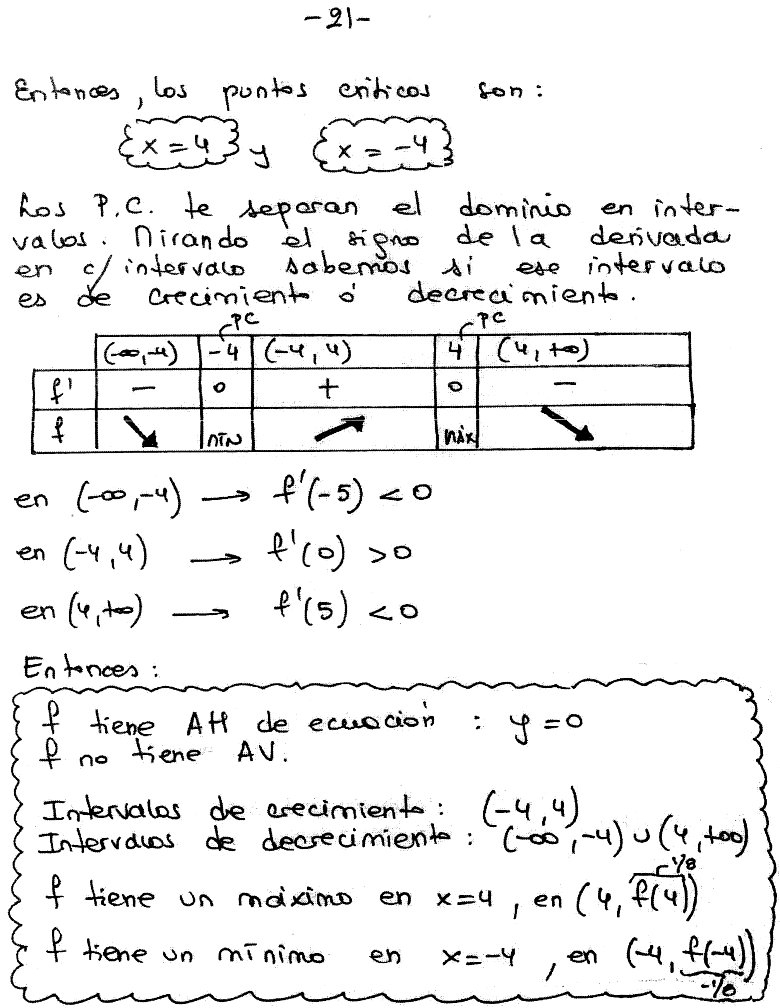 -21-
Entonces, los puntos críticos son:
x = 4 y x = -4
Los P.C. te separan el dominio en inter-
valos. Mirando el signo de la derivada
en c/ intervalo sabemos si ese intervalo
es de crecimiento ó decrecimiento.
PC PC
(-∞,-4) -4 (-4, 4) 4 (4, +∞)
f' - 0 + 0 -
f ↘ mín ↗ máx ↘
en (-∞,-4) → f'(-5) < 0
en (-4,4) → f'(0) > 0
en (4,+∞) → f'(5) < 0
Entonces:
f tiene AH de ecuación : y = 0
f no tiene AV.
Intervalos de crecimiento: (-4,4)
Intervalos de decrecimiento: (-∞,-4) ∪ (4,+∞)
1/8
f tiene un máximo en x=4, en (4, f(4))
f tiene un mínimo en x=-4, en (-4, f(-4))
-1/8